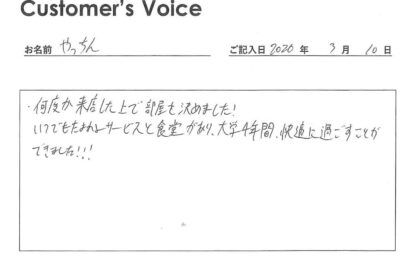 Customer's Voice
お名前 やっちん ご記入日 2020 年 3 月 10 日
・何度か来店した上で部屋を決めました!
いつでもたよれるサービスと食堂があり、大学4年間、快適に過ごすことが
できました!!!